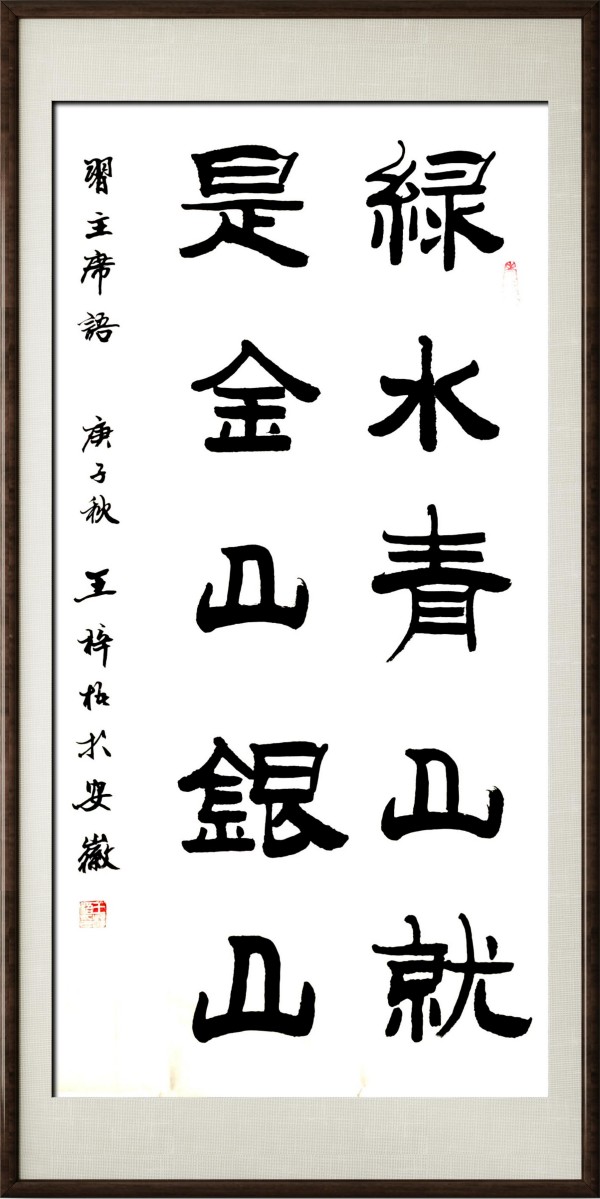 緑水青山就
是金山銀山
習主席語 庚子秋 王梓栢於安徽